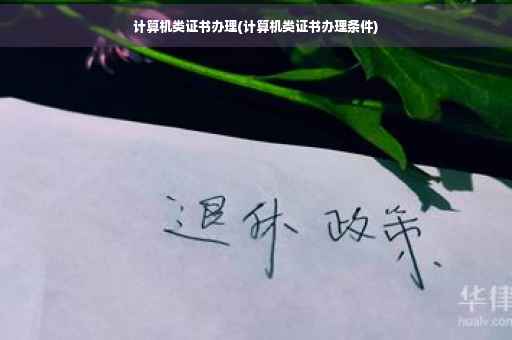 计算机类证书办理(计算机类证书办理条件)
退休 政策
华律
hualv.com